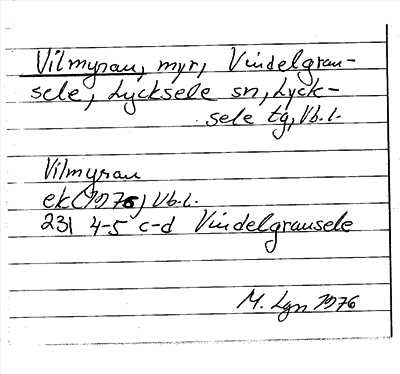 Vilmyran, myr, Vindelgran-
sele, Lycksele sn, Lyck-
sele tg, Vb.l.
Vilmyran
ek (1976) Vb.l.
231 4-5 c-d Vindelgransele
M. Lgn 1976